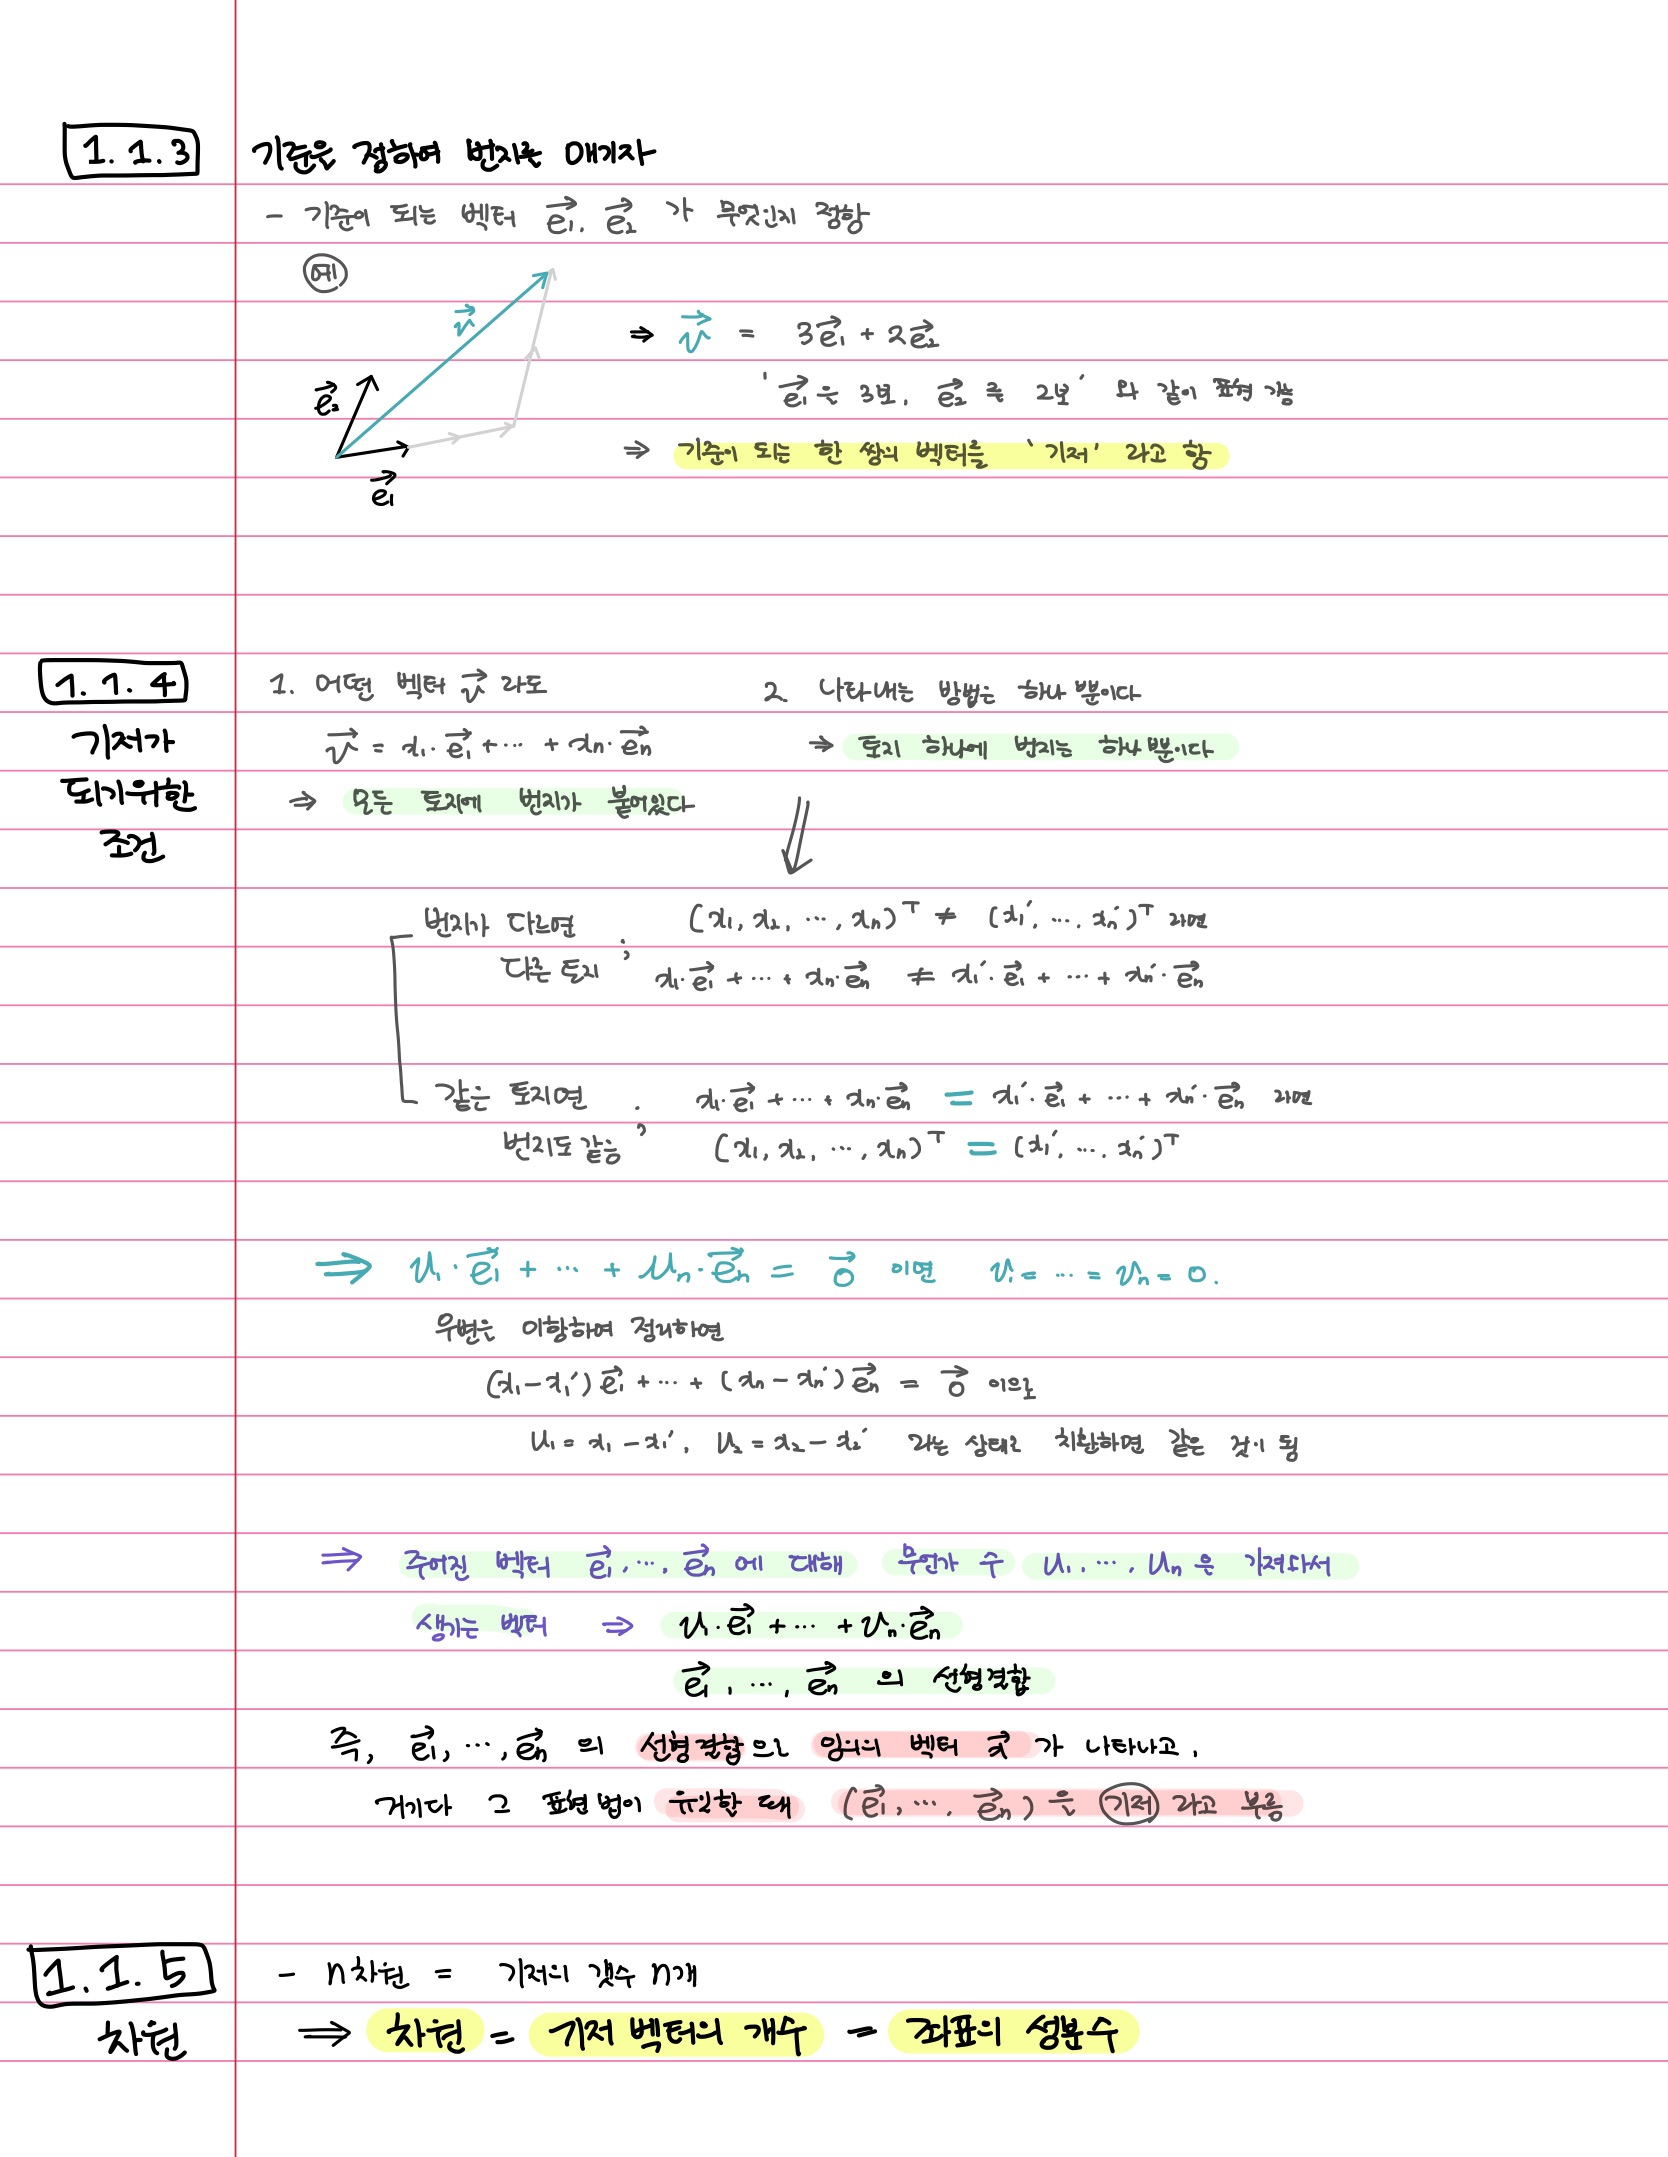 1.1.3 기준을 정하여 번지를 매기자
- 기준이 되는 벡터 e₁→, e₂→ 가 무엇인지 정함
예
v→
e₂→
e₁→
⇒ v→ = 3e₁→ + 2e₂→
'e₁→을 3보, e₂→ 를 2보' 와 같이 표현 가능
⇒ 기준이 되는 한 쌍의 벡터를 '기저' 라고 함
1.1.4
기저가
되기위한
조건
1. 어떤 벡터 v→ 라도
v→ = x₁·e₁→ + ··· + xn·en→
⇒ 모든 토지에 번지가 붙어있다
2. 나타내는 방법은 하나 뿐이다
⇒ 토지 하나에 번지는 하나 뿐이다
⇓
번지가 다르면
다른 토지 ;
(x₁, x₂, ···, xn)ᵀ ≠ (x₁′, ···, xn′)ᵀ 라면
x₁·e₁→ + ··· + xn·en→ ≠ x₁′·e₁→ + ··· + xn′·en→
같은 토지면
번지도 같음 ;
x₁·e₁→ + ··· + xn·en→ = x₁′·e₁→ + ··· + xn′·en→ 라면
(x₁, x₂, ···, xn)ᵀ = (x₁′, ···, xn′)ᵀ
⇒ u₁·e₁→ + ··· + un·en→ = 0→ 이면 u₁ = ··· = un = 0.
우변을 이항하여 정리하면
(x₁-x₁′)e₁→ + ··· + (xn-xn′)en→ = 0→ 이으로
u₁ = x₁-x₁′, u₂ = x₂-x₂′ 라는 상태로 치환하면 같은 것이 됨
⇒ 주어진 벡터 e₁→, ···, en→ 에 대해 무언가 수 u₁, ···, un을 가져와서
생기는 벡터 ⇒ u₁·e₁→ + ··· + un·en→
e₁→, ···, en→ 의 선형결합
즉, e₁→, ···, en→ 의 선형결합으로 임의의 벡터 x→ 가 나타나고,
거기다 그 표현 법이 유일할 때 (e₁→, ···, en→) 을 기저 라고 부름
1.1.5
차원
- n차원 = 기저의 갯수 n개
⇒ 차원 = 기저 벡터의 개수 = 좌표의 성분 수